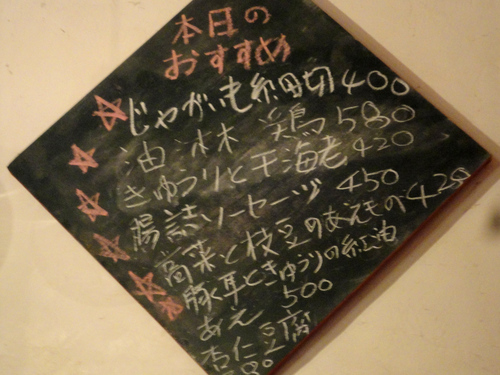 本日の
おすすめ
じゃがいも細切400
油淋鶏580
きゅうりと干海老420
腸詰ソーセージ450
高菜と枝豆のあえもの420
豚耳ときゅうりの紅油
あえ 500
杏仁豆腐
380